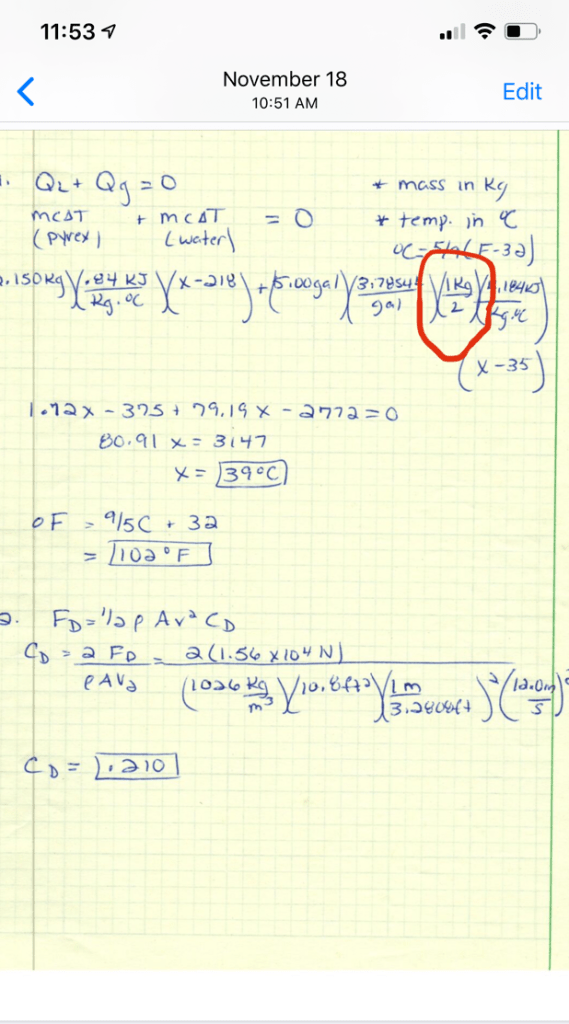 11:53
November 18
10:51 AM
Edit
1. QL + Qg = 0 * mass in kg
mCΔT + mCΔT = 0 * temp. in °C
(pyrex) (water) °C = 5/9(F-32)
2.150kg)(.84 KJ/kg·°C)(x-218) + (5.00gal)(3.7854L/gal)(1kg/L)(4.184KJ/kg·°C)
(x-35)
1.72x - 375 + 79.19x - 2772 = 0
80.91 x = 3147
x = 39°C
°F = 9/5C + 32
= 102°F
2. FD = 1/2 ρ Av² CD
CD = 2 FD/ρAV² = 2(1.56 x 10⁴ N)/(1026 kg/m³)(10.8ft²)(1m/3.2808ft)²(12.0m/s)²
CD = .210